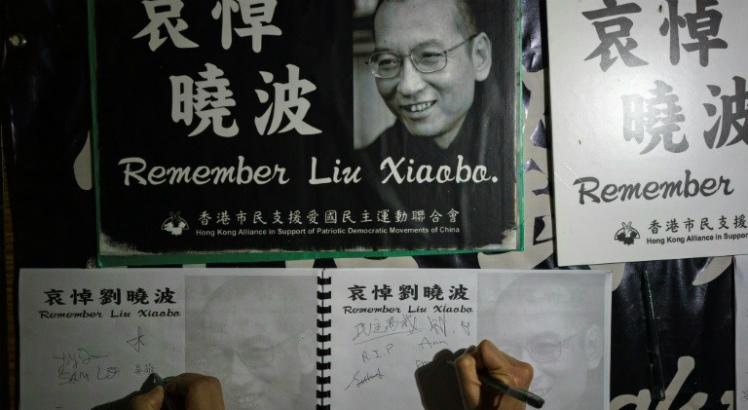 哀悼
曉波
Remember Liu Xiaobo.
香港市民支援愛國民主運動聯合會
Hong Kong Alliance in Support of Patriotic Democratic Movements of China
哀悼
曉波
Remember
香港市民支援愛國
Hong Kong Alliance in Support of
哀悼劉曉波
Remember Liu Xiaobo
SAM
哀悼劉曉波
Remember Liu Xiaobo
R.I.P
Ann